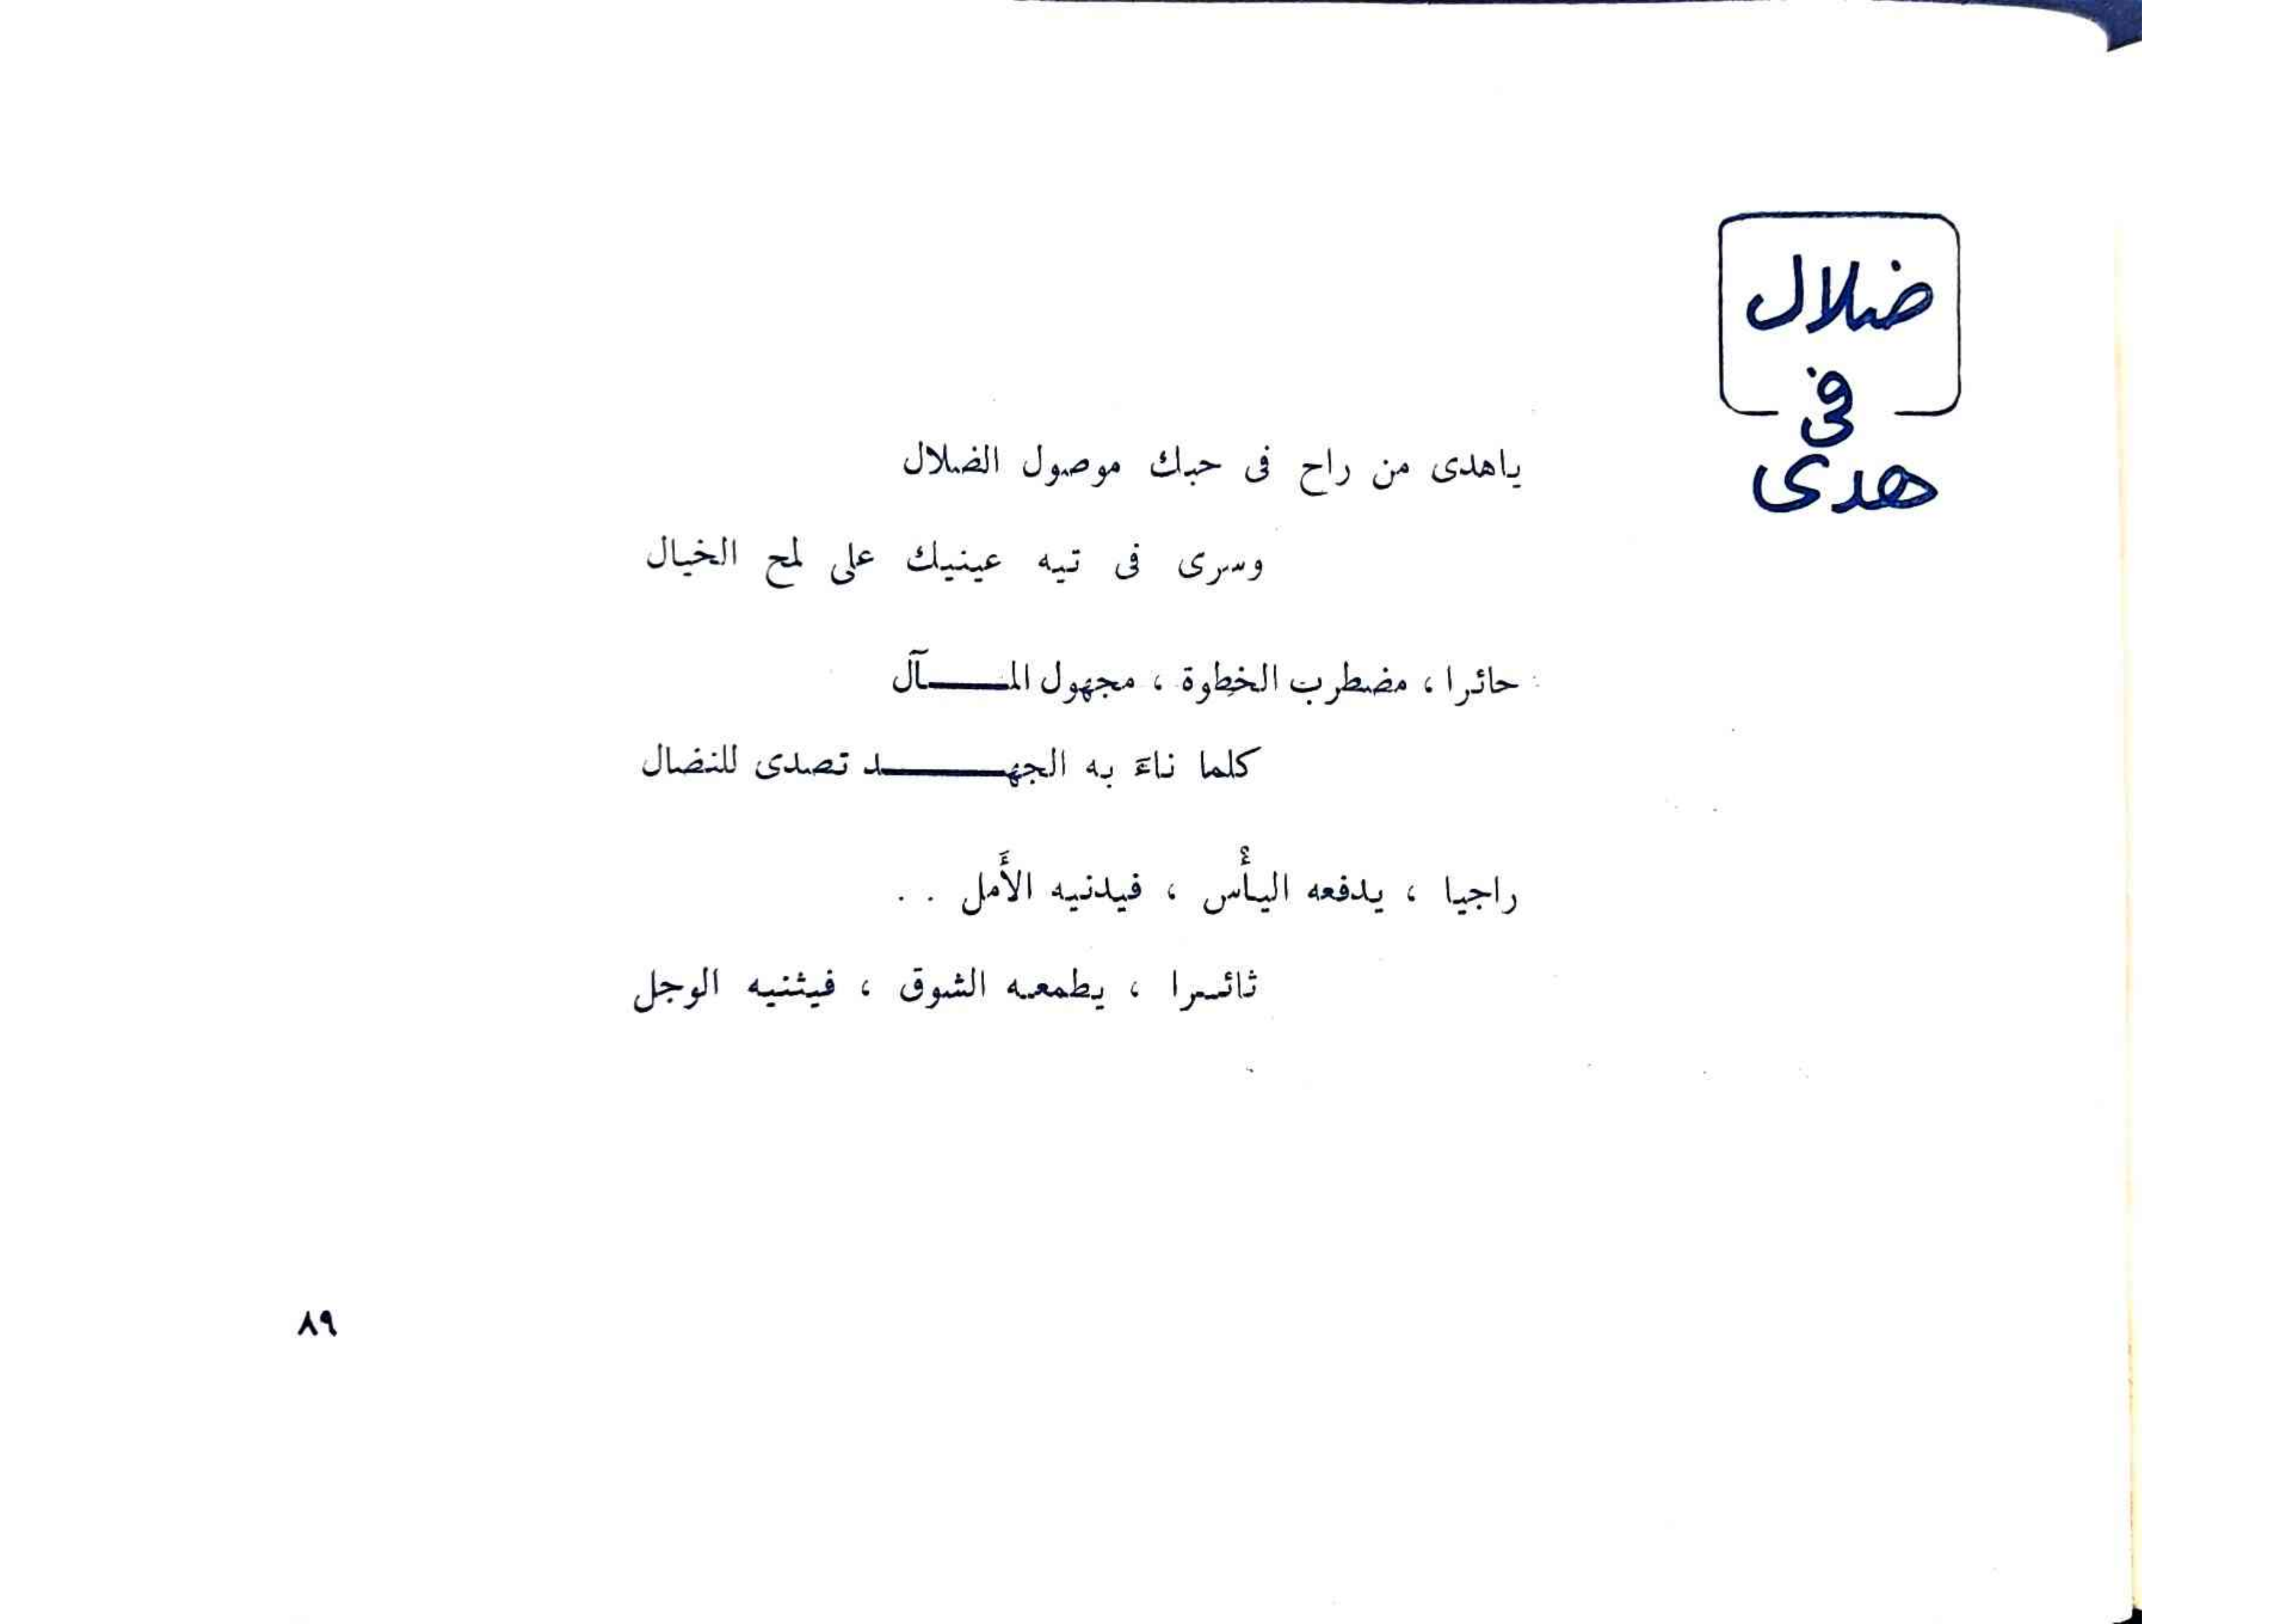 ضلال
فى
هدى
ياهدى من راح فى حبك موصول الضلال
وسرى فى تيه عينيك على لمح الخيال
حائرا ، مضطرب الخطوة ، مجهول المـــــآل
كلما ناءَ به الجهـــــــد تصدى للنضال
راجيا ، يدفعه اليأْس ، فيدنيه الأَمل . .
ثائـــرا ، يطمعـه الشوق ، فيثنيه الوجل
٨٩